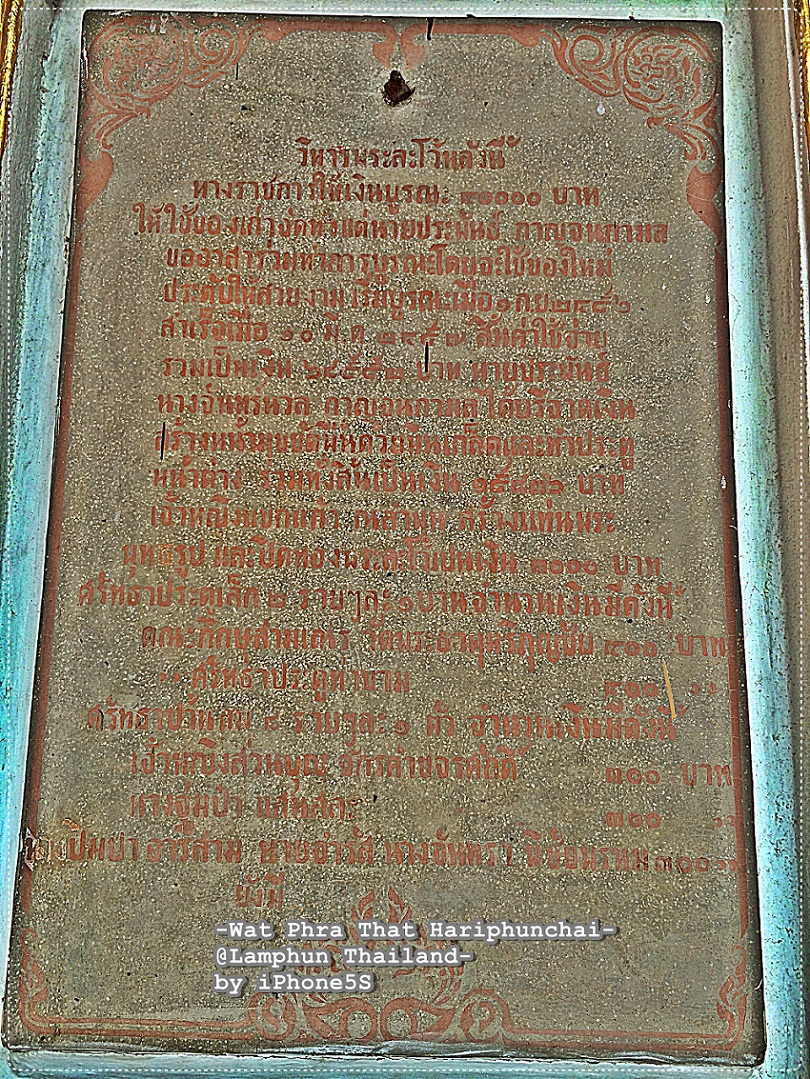 วิหารพระละโว้หลังนี้
ทางราชการให้เงินบูรณะ ๓๐๐๐๐ บาท
ให้ใช้ของเก่าจัดทำแต่นายประพันธ์ กาญจนกามล
ขออาสาร่วมทำการบูรณะโดยจะใช้ของใหม่
ประดับให้สวยงาม เริ่มบูรณะเมื่อ ๑ ก.ย.
สำเร็จเมื่อ ๑๐ มี.ค. สิ้นค่าใช้จ่าย
รวมเป็นเงิน บาท นายประพันธ์
นางจันทร์นวล กาญจนกามล ได้บริจาคเงิน
สร้างหน้ามุขปูพื้นด้วยหินเกล็ดและทำประตู
หน้าต่าง รวมทั้งสิ้นเป็นเงิน บาท
เจ้าหญิงแขกแก้ว ณ ลำพูน สร้างแท่นพระ
พุทธรูป และปิดทองพระละโว้เป็นเงิน ๓๐๐๐ บาท
ศรัทธาประตูเล็ก ๒ รายๆละ ๑ บาน จำนวนเงินมีดังนี้
คณะภิกษุสามเณร วัดพระธาตุหริภุญชัย บาท
" ศรัทธาประตูท่าขาม
ศรัทธาปั้นลม ๔ รายๆละ ๑ ตัว จำนวนเงินมีดังนี้
เจ้าหญิงส่วนบุญ จักรคำขจรศักดิ์ ๓๐๐ บาท
๓๐๐ "
นายจำรัส นางจันทรา
ยังมี
-Wat Phra That Hariphunchai-
@Lamphun Thailand-
by iPhone5S